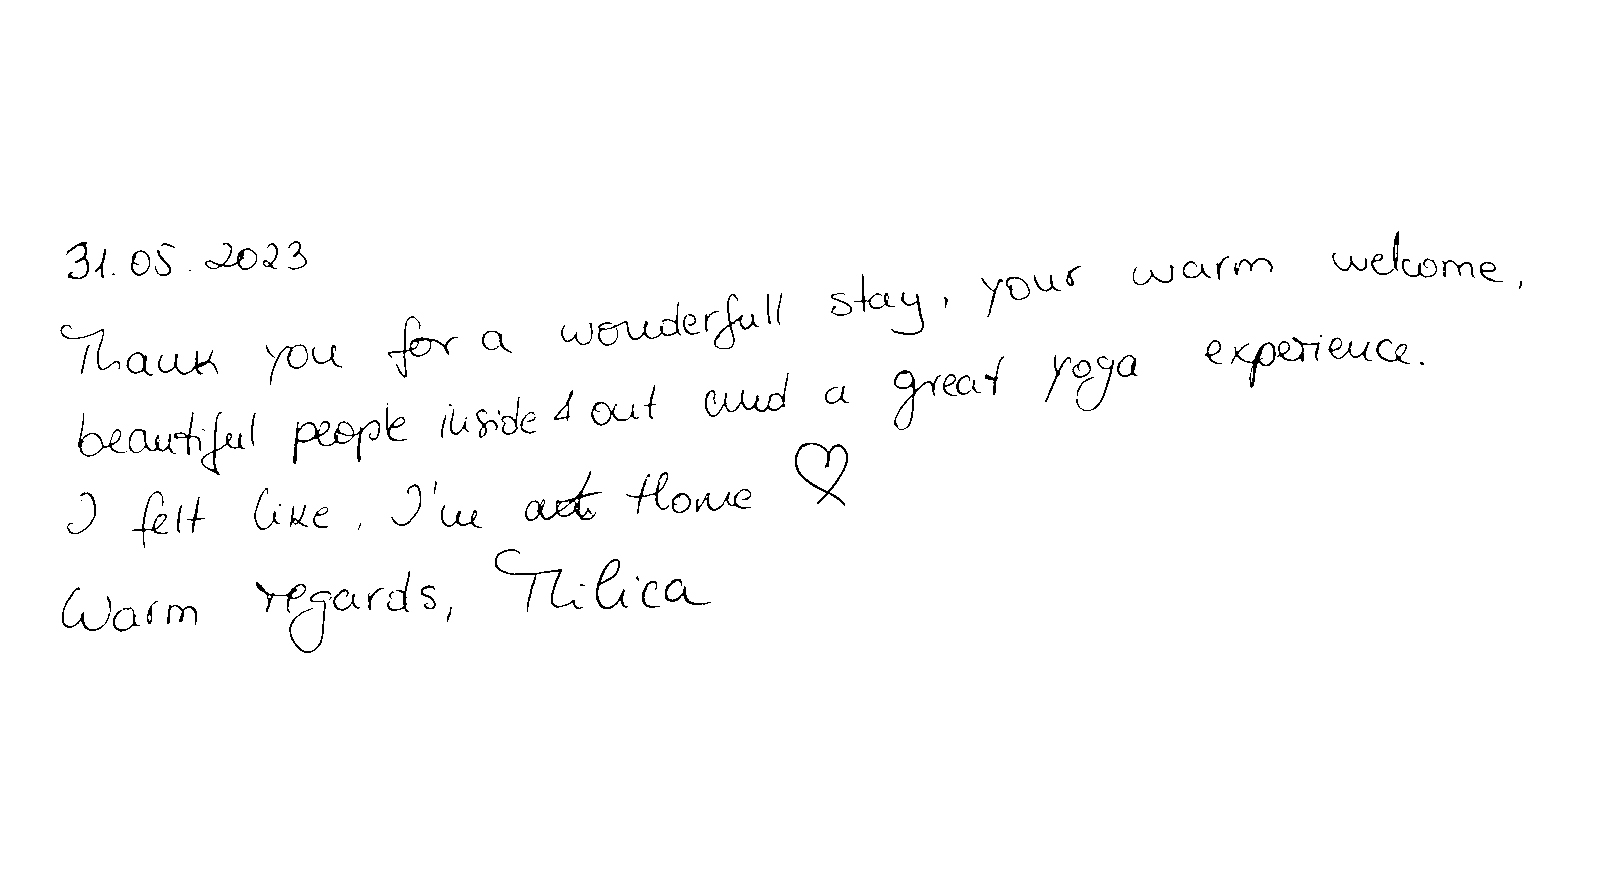 31.05.2023
Thank you for a wonderfull stay, your warm welcome,
beautiful people inside & out and a great yoga experience.
I felt like, I'm at Home ♡
Warm regards, Milica